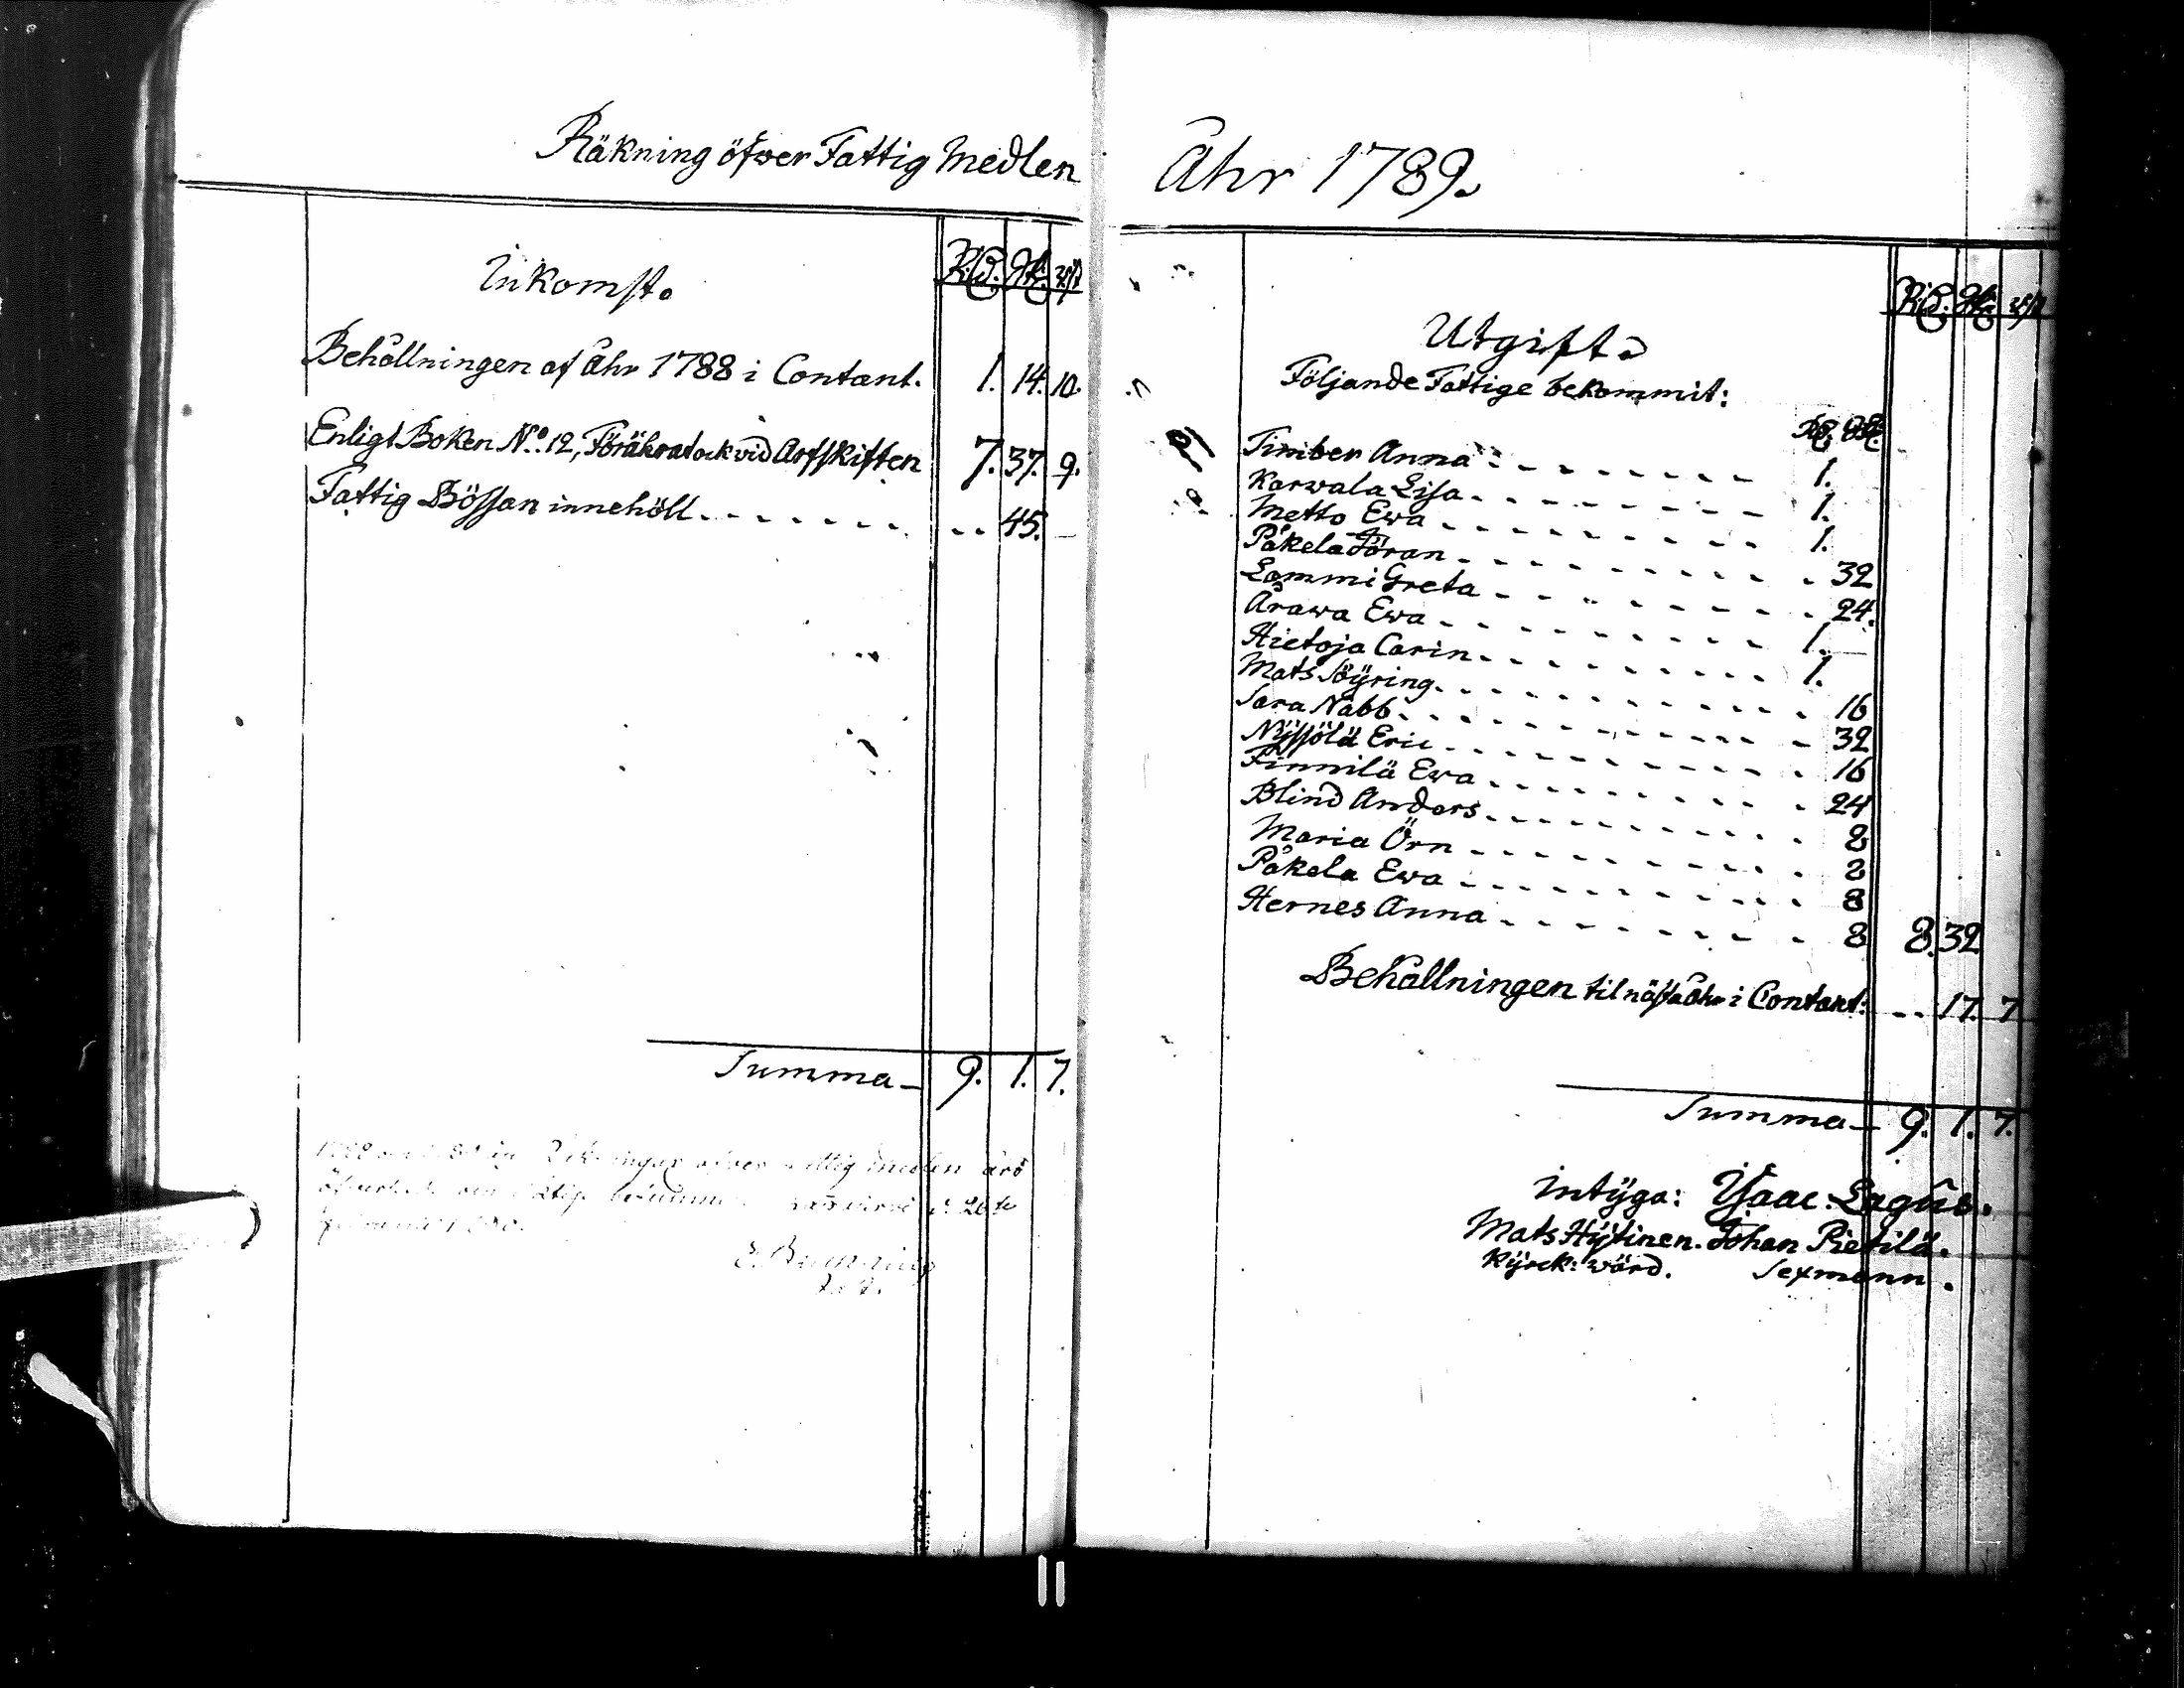 Räkning öfwer Fattig Medlen
Inkomst.
R:D. sk: r/st
Behållningen af Åhr 1788 i Contant. 1. 14. 10.
Enligt Boken N:o 12, Förährat ock vid Arfskiften 7. 37. 9.
Fattig Bössan innehöll . . . . . . . . . 45. –
Summa – 9. 1. 7.
äro
26te
Åhr 1789.
R:D. sk: r/st
Utgift.
Följande Fattige bekommit:
RD. sk:
Timber Anna . . . . . . . . . 1.
Karwala Lisa . . . . . . . . . 1.
Metto Ewa . . . . . . . . . 1.
Påkela Jöran . . . . . . . . . 32
Lammi Greta . . . . . . . . . 24.
Årawa Ewa . . . . . . . . . 1.
Hietoja Carin . . . . . . . . . 1.
Mats Söyring . . . . . . . . . 16
Sara Nabb . . . . . . . . . 32
Nyssölä Eric . . . . . . . . . 16
Finnilä Ewa . . . . . . . . . 24
Blind Anders . . . . . . . . . 8
Maria Örn . . . . . . . . . 8
Påkela Ewa . . . . . . . . . 8
Hernes Anna . . . . . . . . . 8 8. 32
Behållningen til nästa Åhr i Contant: . . 17. 7
Summa – 9. 1. 7.
Intÿga: Isaac Lagus.
Mats Hytinen. Johan Pietilä.
Kÿrck: wärd. Sexmann.